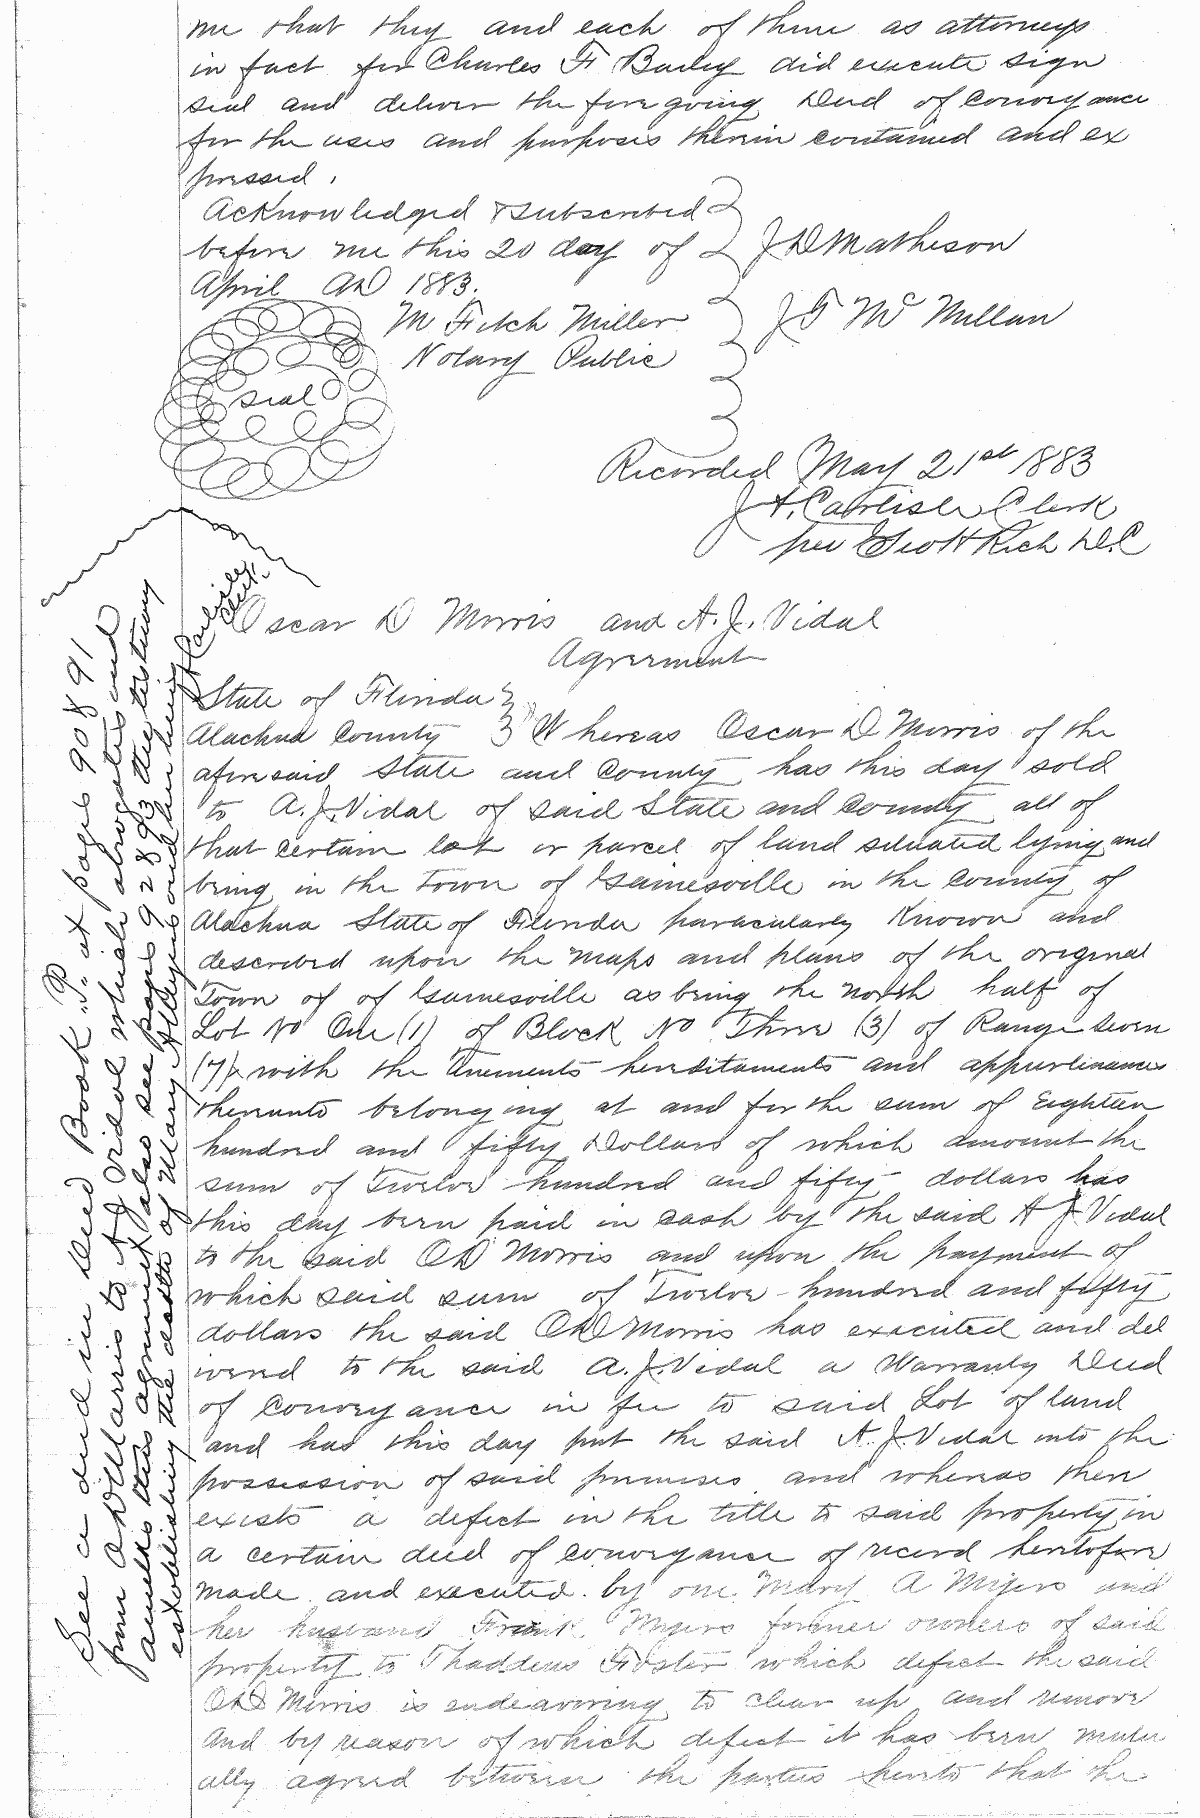 me that they and each of them as attorneys
in fact for Charles F Bailey did execute sign
seal and deliver the fore going Deed of Conveyance
for the uses and purposes therein contained and ex
pressed.
Acknowledged & Subscribed
before me this 20 day of
April AD 1883.
J D Matheson
M Fitch Miller
Notary Public
J F McMillan
Seal
Recorded May 21st 1883
J A. Carlisle Clerk
per Scott Rich D.C
Oscar D Morris and A. J. Vidal
Agreement
State of Florida
Alachua County Whereas Oscar D Morris of the
aforesaid State and County has this day sold
to A. J. Vidal of said State and County all of
that certain lot or parcel of land situated lying and
being in the Town of Gainesville in the County of
Alachua State of Florida paracularly Known and
described upon the maps and plans of the original
Town of of Gainesville as being the north half of
Lot No One (1) of Block No Three (3) of Range Seven
(7) with the Tenements hereditaments and appurtinances
thereunto belonging at and for the sum of Eighteen
hundred and fifty Dollars of which amount the
sum of Twelve hundred and fifty dollars has
this day been paid in cash by the said A J Vidal
to the said O D Morris and upon the payment of
which said sum of Twelve hundred and fifty
dollars the said O D Morris has executed and del
ivered to the said A. J. Vidal a Warranty Deed
of Conveyance in fee to said Lot of land
and has this day put the said A. J. Vidal into the
possession of said premises and whereas there
exists a defect in the title to said property in
a certain deed of conveyance of record heretofore
made and executed by one Mary A Myers and
her husband Frank Myers former owners of said
property to Thaddeus Foster which defect the said
O D Morris is endeavoring to clear up and remove
And by reason of which defect it has been mutu
ally agreed between the parties hereto that the
See a deed in Deed Book "P" at pages 90 & 91
from O D Morris to A J Vidal which abrogates and
annulls this agreement also see pages 92 & 93 the testimony
establishing the death of Mary A Myers
Carlisle
Clerk.